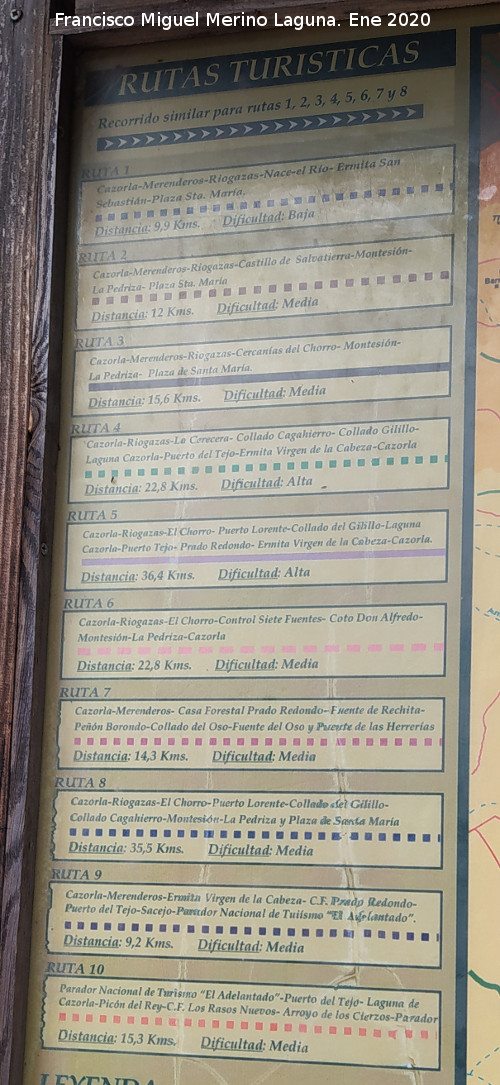 Francisco Miguel Merino Laguna. Ene 2020
RUTAS TURISTICAS
Recorrido similar para rutas 1, 2, 3, 4, 5, 6, 7 y 8
RUTA 1
Cazorla-Merenderos-Riogazas-Nace-el Río- Ermita San
Sebastián-Plaza Sta. María.
Distancia: 9,9 Kms. Dificultad: Baja
RUTA 2
Cazorla-Merenderos-Riogazas-Castillo de Salvatierra-Montesión-
La Pedriza- Plaza Sta. María
Distancia: 12 Kms. Dificultad: Media
RUTA 3
Cazorla-Merenderos-Riogazas-Cercanías del Chorro- Montesión-
La Pedriza- Plaza de Santa María.
Distancia: 15,6 Kms. Dificultad: Media
RUTA 4
Cazorla-Riogazas-La Cerecera- Collado Cagahierro- Collado Gilillo-
Laguna Cazorla-Puerto del Tejo-Ermita Virgen de la Cabeza-Cazorla
Distancia: 22,8 Kms. Dificultad: Alta
RUTA 5
Cazorla-Riogazas-El Chorro- Puerto Lorente-Collado del Gilillo-Laguna
Cazorla-Puerto Tejo- Prado Redondo- Ermita Virgen de la Cabeza-Cazorla.
Distancia: 36,4 Kms. Dificultad: Alta
RUTA 6
Cazorla-Riogazas-El Chorro-Control Siete Fuentes- Coto Don Alfredo-
Montesión-La Pedriza-Cazorla
Distancia: 22,8 Kms. Dificultad: Media
RUTA 7
Cazorla-Merenderos- Casa Forestal Prado Redondo-Fuente de Rechita-
Peñón Borondo-Collado del Oso-Fuente del Oso y Puente de las Herrerías
Distancia: 14,3 Kms. Dificultad: Media
RUTA 8
Cazorla-Riogazas-El Chorro-Puerto Lorente-Collado del Gilillo-
Collado Cagahierro-Montesión-La Pedriza y Plaza de Santa María
Distancia: 35,5 Kms. Dificultad: Media
RUTA 9
Cazorla-Merenderos-Ermita Virgen de la Cabeza- C.F. Prado Redondo-
Puerto del Tejo-Sacejo-Parador Nacional de Tuiismo "El Adelantado".
Distancia: 9,2 Kms. Dificultad: Media
RUTA 10
Parador Nacional de Turismo "El Adelantado"-Puerto del Tejo- Laguna de
Cazorla-Picón del Rey-C.F. Los Rasos Nuevos- Arroyo de los Cierzos-Parador
Distancia: 15,3 Kms. Dificultad: Media
LEYENDA